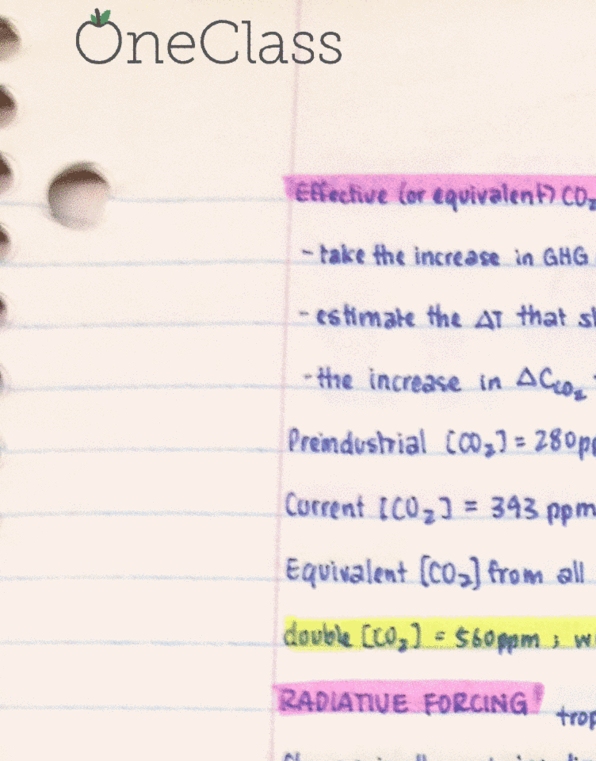 OneClass
Effective (or equivalent) CO₂
- take the increase in GHG
- estimate the ΔT that
- the increase in ΔC_CO₂
Preindustrial [CO₂] = 280pp
Current [CO₂] = 393 ppm
Equivalent [CO₂] from all
double [CO₂] = 560ppm ; w
RADIATIVE FORCING trop